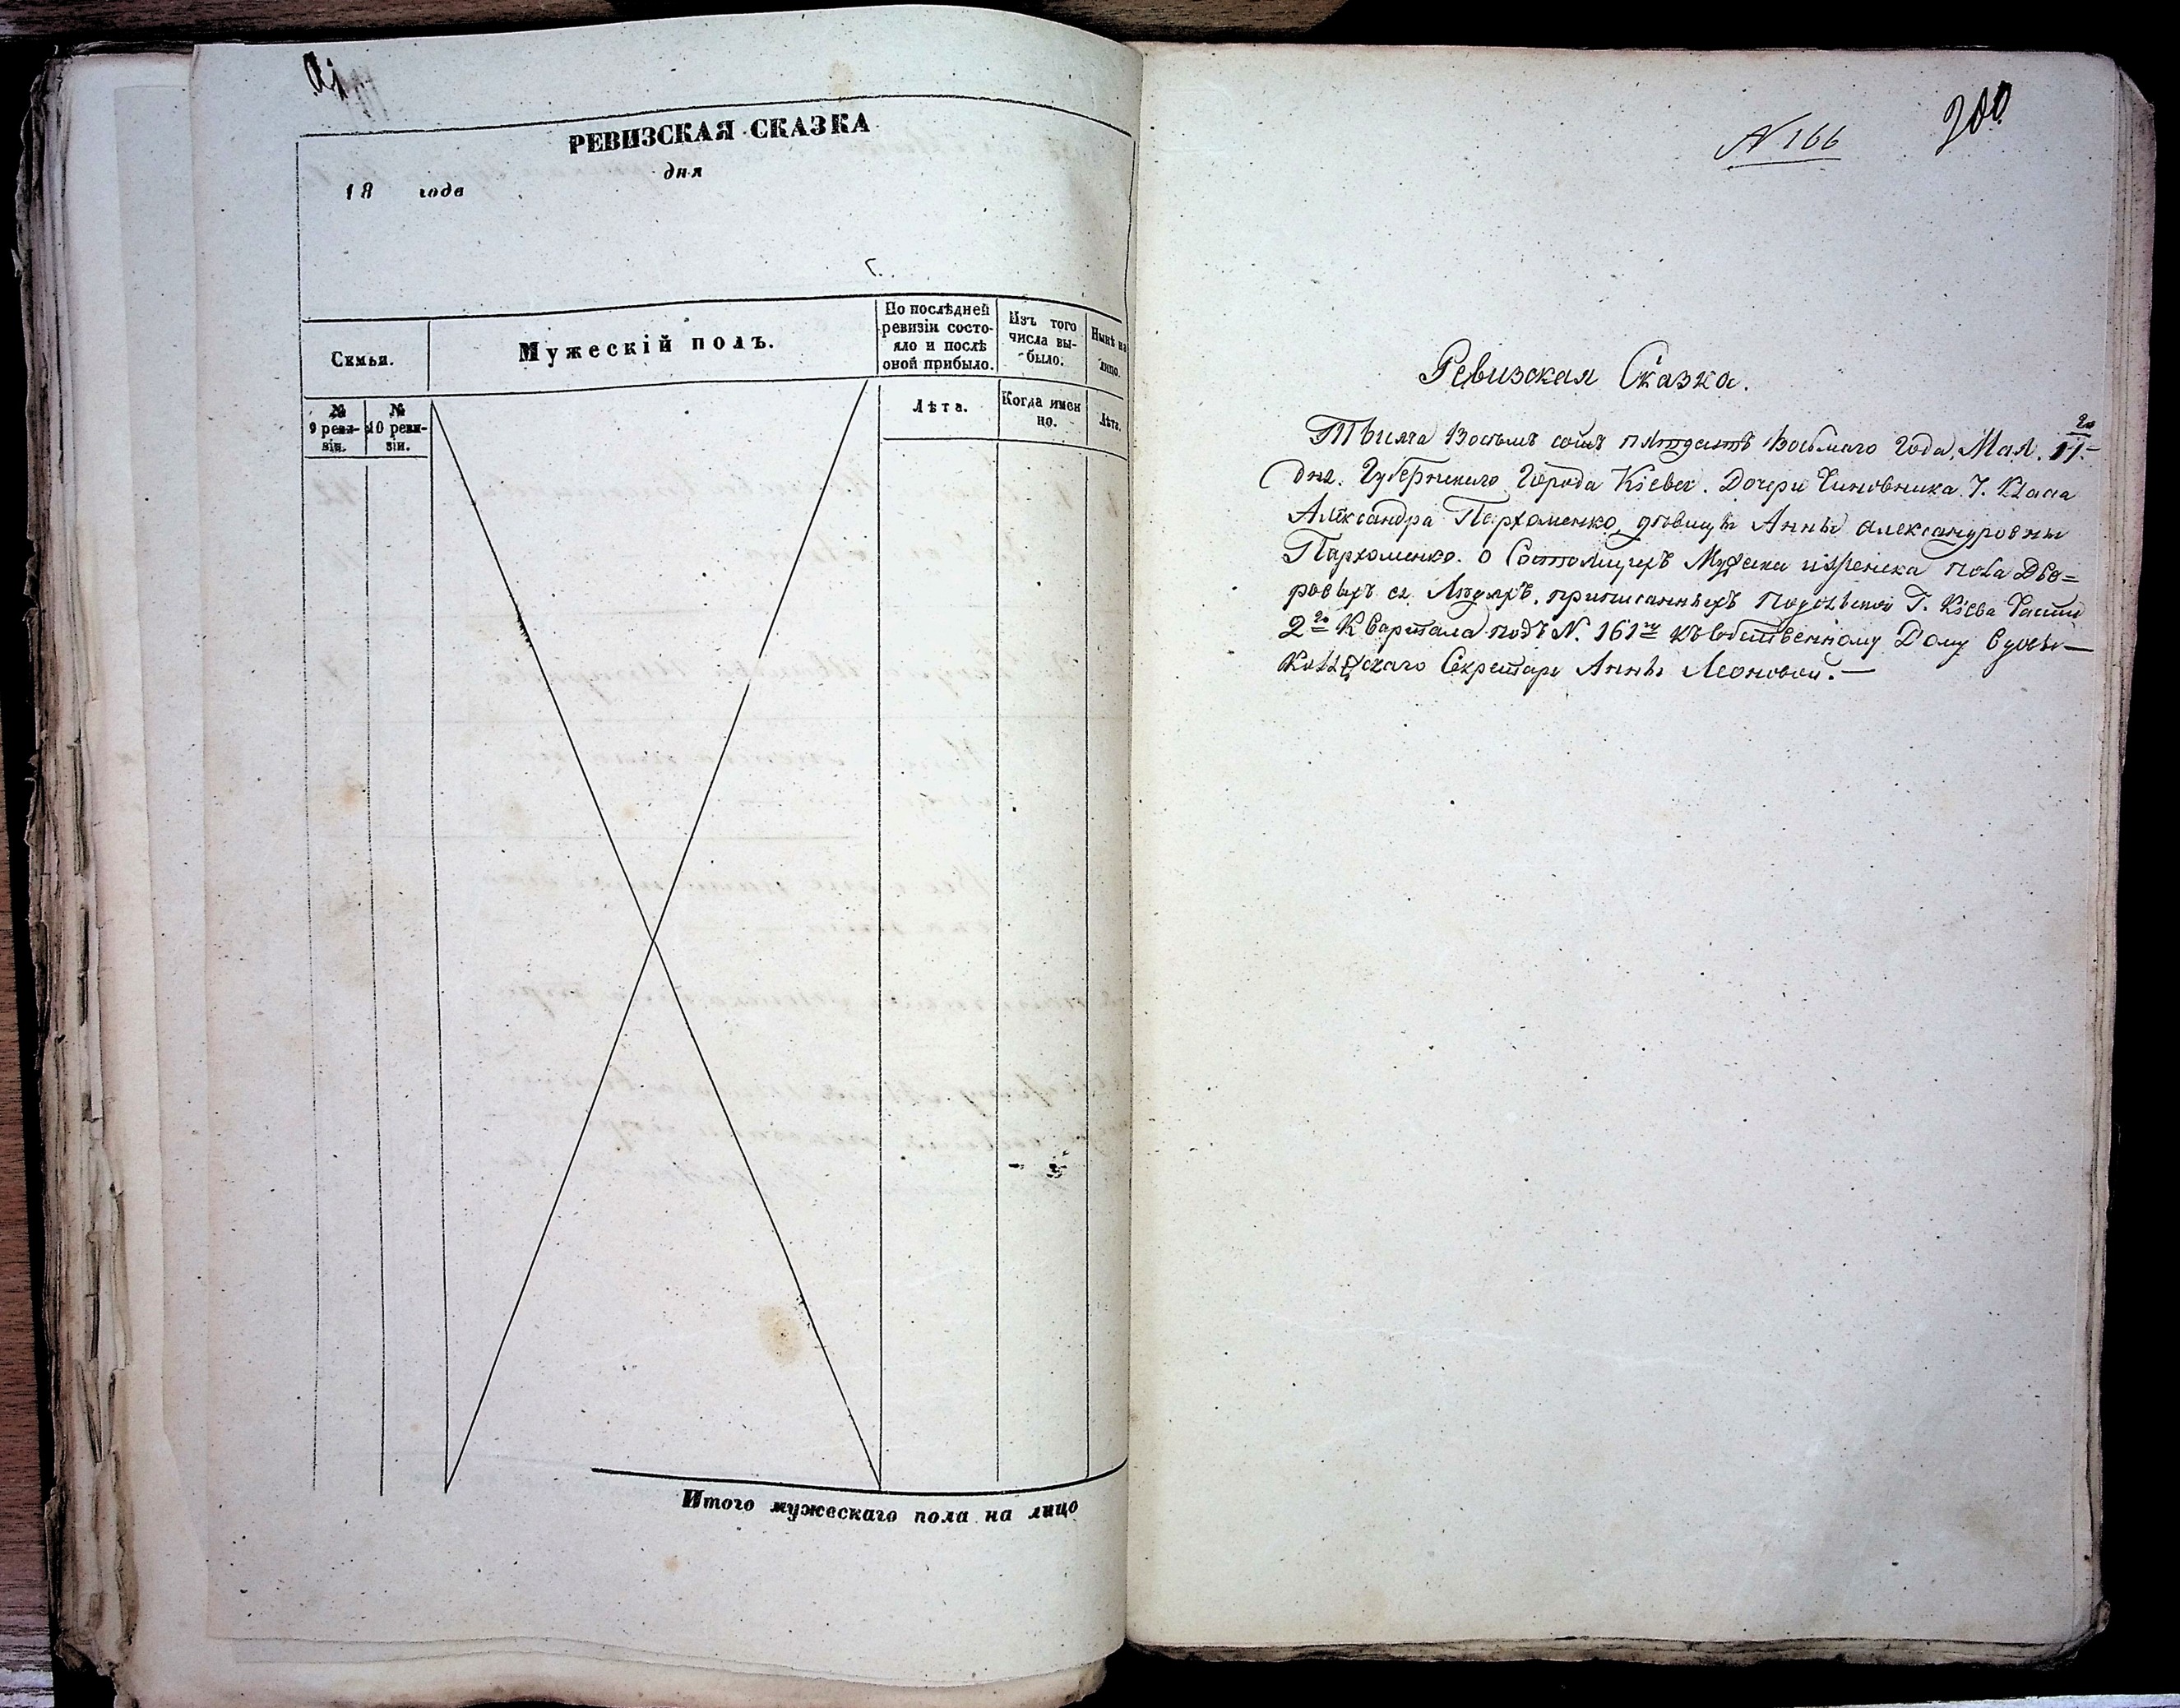 РЕВИЗСКАЯ СКАЗКА
18 года дня
г.
Семьи.
Мужескій полъ.
По послѣдней ревизіи состояло и послѣ оной прибыло.
Изъ того числа выбыло.
Ныне на лицо.
№ 9 ревизіи.
№ 10 ревизіи.
Лѣта.
Когда именно.
Лѣта.
Итого мужескаго пола на лицо
N 166
200
Ревизская Сказка.
Тысяча Восемь сотъ пятдесятъ Восьмаго Года, Мая. 11.го
дня. Губернскаго Города Кіева. Дочери Чиновника 7. Класа
Александра Пархоменко, девицы Анны Александровны
Пархоменко. о Состоящихъ Мужска и женска пола Дво=
ровыхъ ея Людяхъ, приписанныхъ Подольской Г. Кіева Части
2го Квартала подъ N. 161м къ собственному Дому вдовы —
Колежскаго Секретаря Анны Леоновой. —